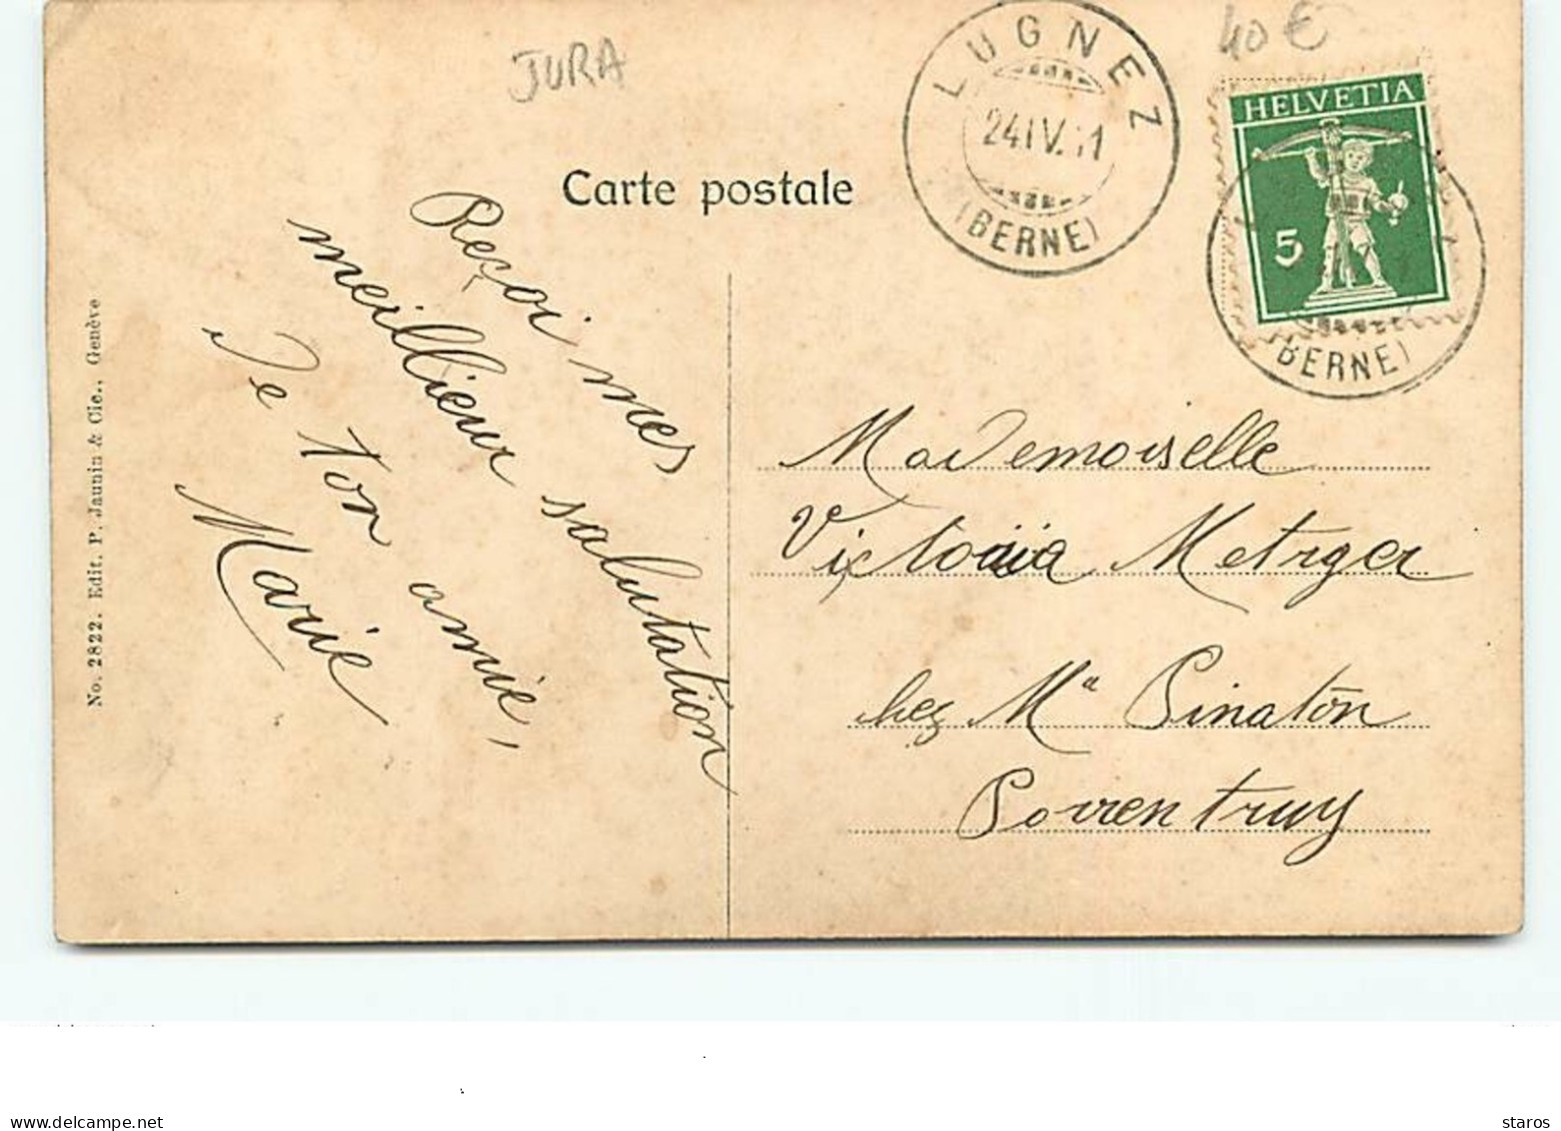 JURA
40 €
LUGNEZ
24 IV. 11
(BERNE)
HELVETIA
5
(BERNE)
Carte postale
Reçoi mes
meillieur salutation
De ton amie,
Marie
Mademoiselle
Victoria Metzger
chez Mᵃ Pinaton
Porrentruy
No. 2822. Edit. P. Jaunin & Cie., Genève
www.delcampe.net
staros